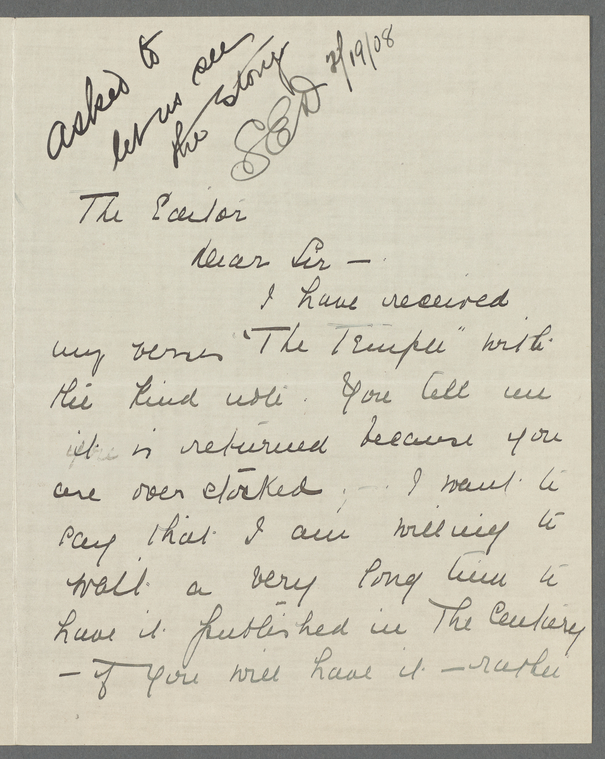 asked to
let us see
the story
SED 2/19/08
The Editor
Dear Sir —
I have received
my verses "The Temple" with
the kind note. You tell me
it is returned because you
are over stocked . I want to
say that I am willing to
wait a very long time to
have it published in The Century
— if you will have it — rather